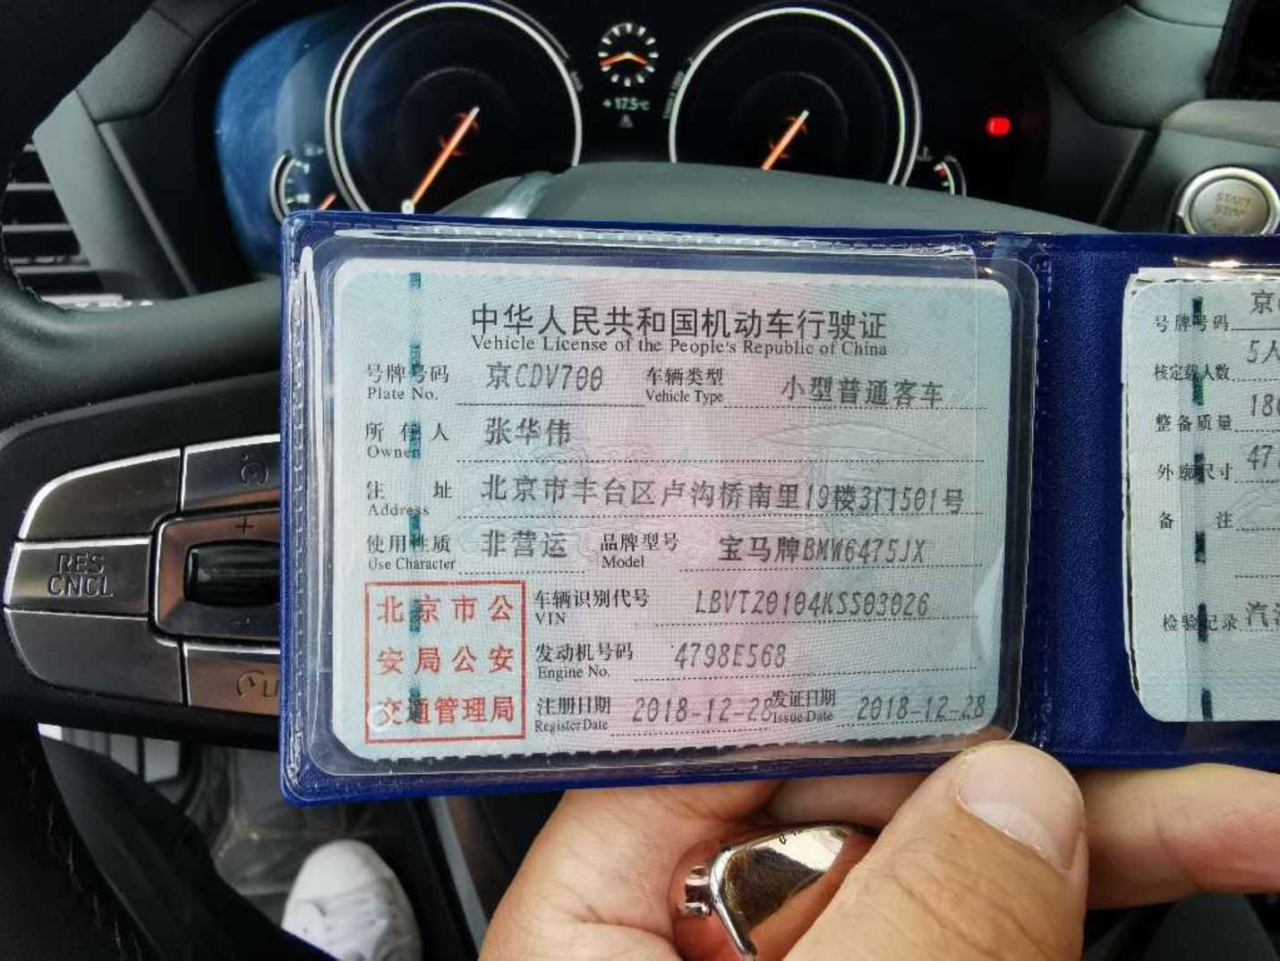 +17.5°C
START
STOP
中华人民共和国机动车行驶证
Vehicle License of the People's Republic of China
号牌号码 京CDV700 车辆类型 小型普通客车
Plate No. Vehicle Type
所有人 张华伟
Owner
住址 北京市丰台区卢沟桥南里19楼3门501号
Address
使用性质 非营运 品牌型号 宝马牌BMW6475JX
Use Character Model
北京市公
安局公安
交通管理局
车辆识别代号 LBVTZ0104KSS03026
VIN
发动机号码 4798E568
Engine No.
注册日期 2018-12-28 发证日期 2018-12-28
Register Date Issue Date
号牌号码 京
核定载人数 5人
整备质量 18
外廓尺寸 47
备注
检验记录 汽
RES
CNCL
+
-